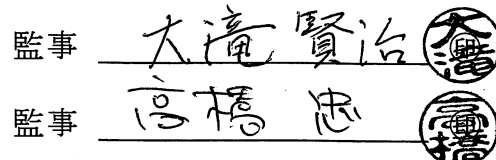 監事 大滝賢治 大滝印
監事 高橋忠 高橋印